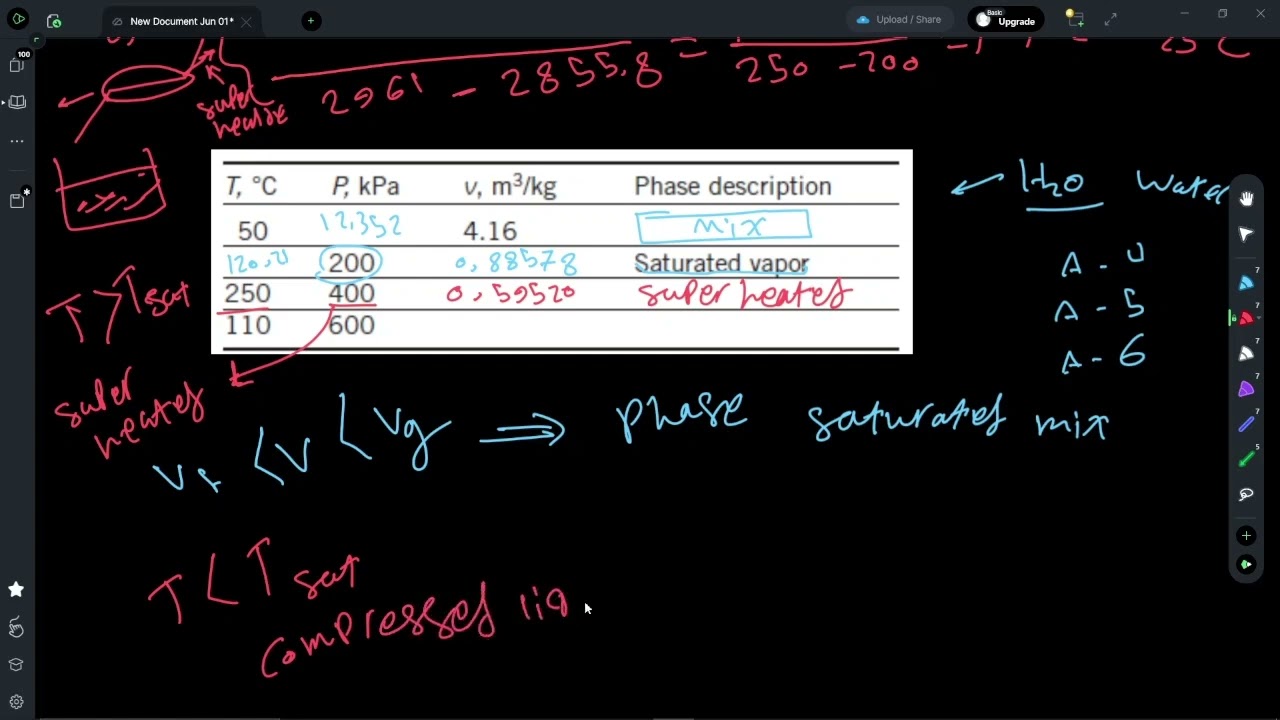 New Document Jun 01*
Upload / Share
Basic
Upgrade
100
super
heated
2961 - 2855.8 =
250 - 200
H2O Water
T, °C P, kPa v, m³/kg Phase description
50 12,352 4.16 mix
120,21 200 0,88578 Saturated vapor
250 400 0,59520 super heated
110 600
A - 4
A - 5
A - 6
T > Tsat
super
heated
vf < v < vg ⇒ phase saturated mix
T < Tsat
compressed liq
7
7
7
7
7
5